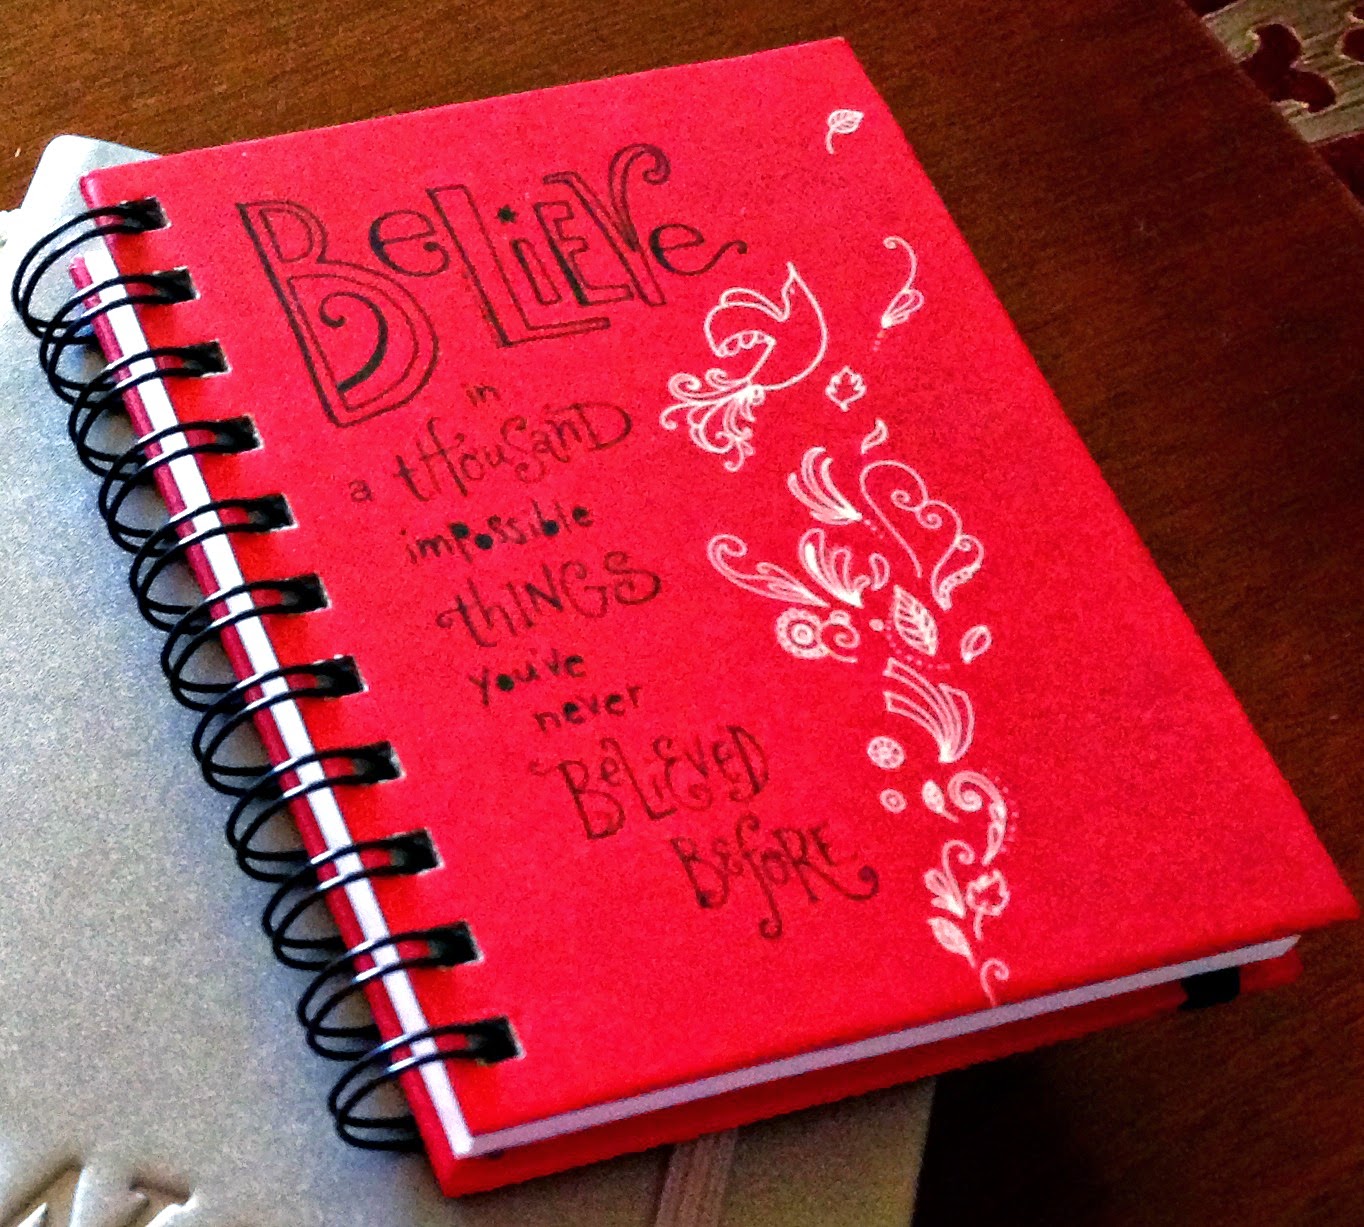 BeLiEVe
in
a tHousaND
impossible
tHINGS
you've
never
BeLiEVeD
BEfoRE